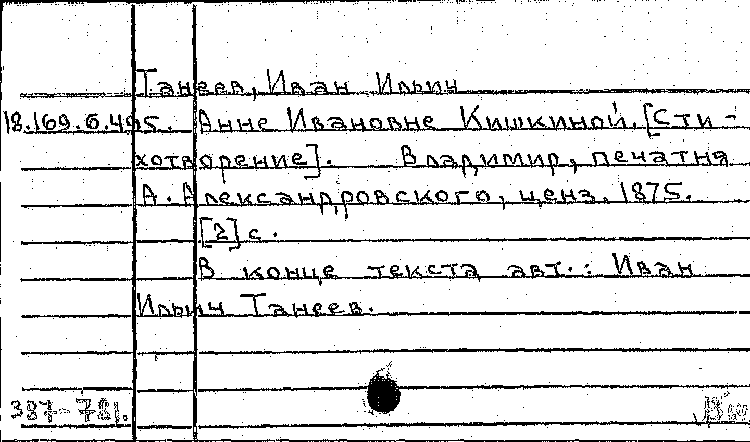 Танеев, Иван Ильич
18.169.6.495. Анне Ивановне Кишкиной. [Сти-
хотворение]. Владимир, печатня
А. Александровского, ценз. 1875.
[2] с.
В конце текста авт.: Иван
Ильич Танеев.
387-781.